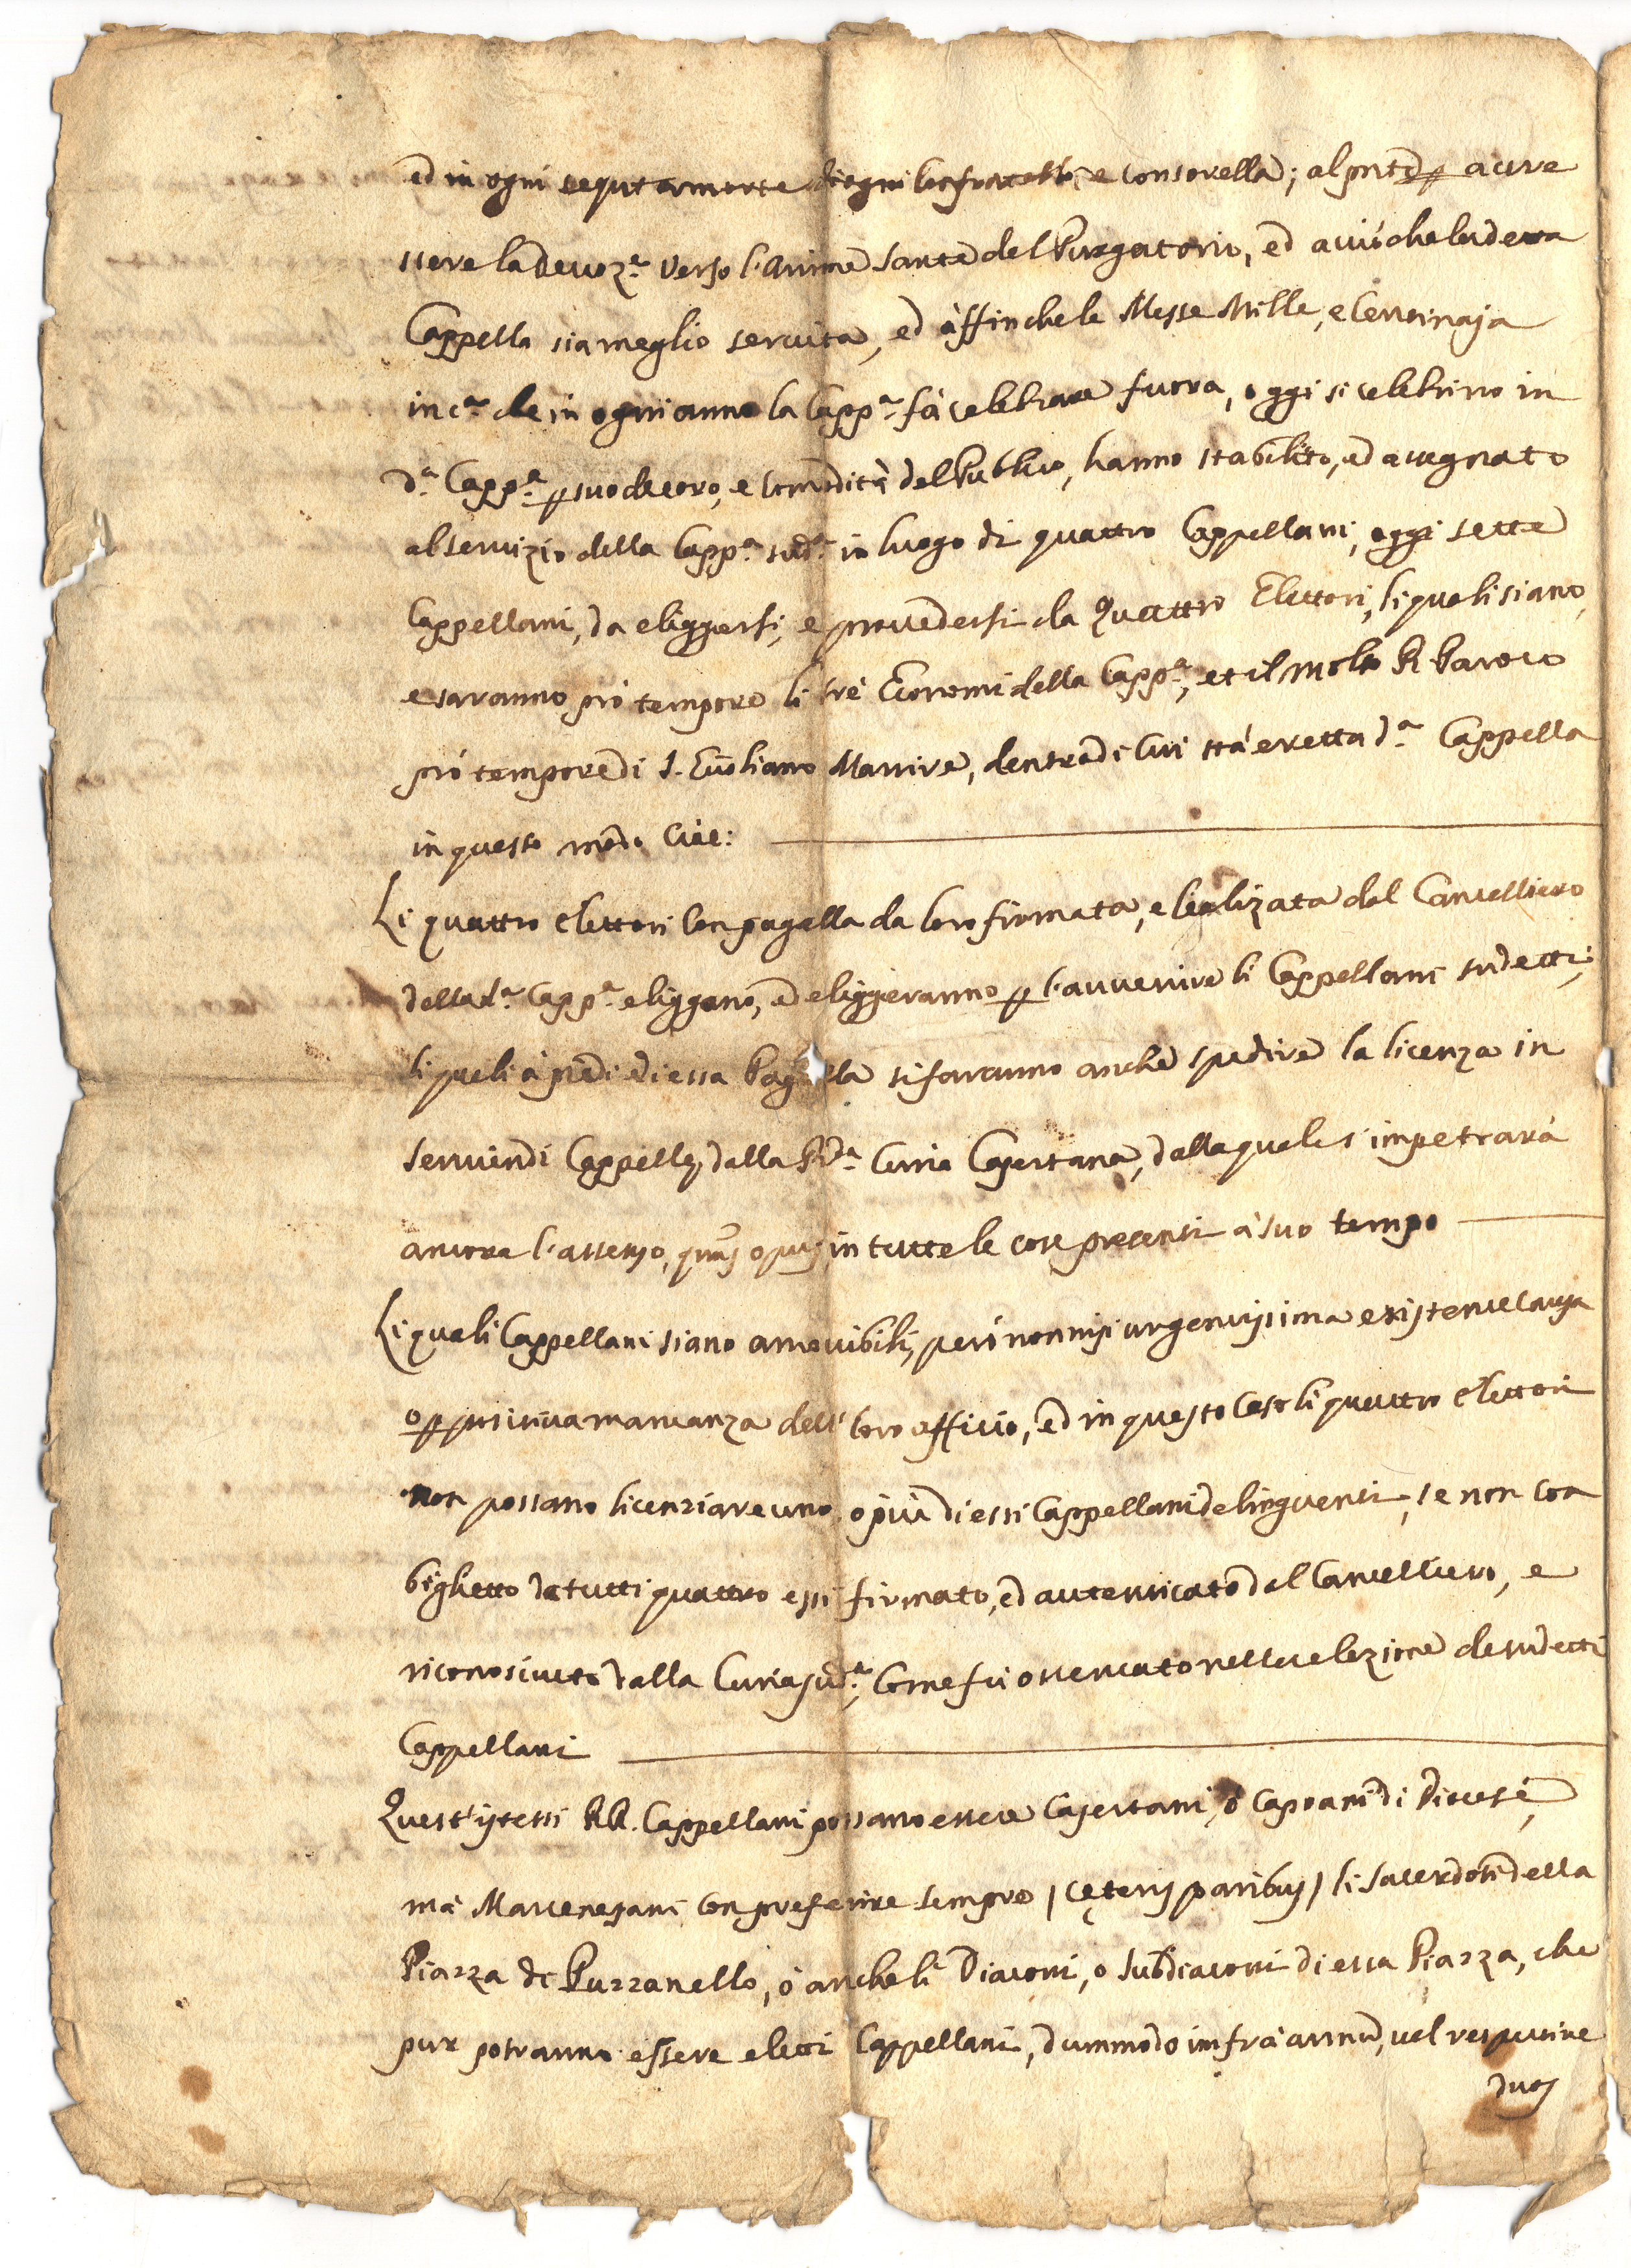 ed in ogni sequt.a morte di ogni Confratello, e Consorella; al pnte p accre
scere la devoz.e verso l'Anime Sante del Purgatorio, ed acciò che la detta
Cappella sia meglio servita, ed àffinche le Messe Mille, e Centinaja
in c.a che in ogni anno la Capp.a fà celebrare fuora, oggi si celebrino in
d.a Capp.a p suo decoro, e Comodità del Publico, hanno stabilito, ed assegnato
al servizio della Capp.a sud.a in luogo di quattro Cappellani, oggi sette
Cappellani, da eliggersi, e provedersi da Quattro Elettori, li quali siano,
e saranno prò tempore li trè Economi della Capp.a, et il molto R. Paroco
prò tempore di S. Martire, dentro di cui stà eretta d.a Cappella
in questo modo Cioè:
Li quattro Elettori con pagella da loro firmata, e legalizata dal Cancelliero
della d.a Capp.a eliggono, ed eliggeranno p l'avvenire li Cappellani sudetti,
li quali à piedi di essa Pagella si faranno anche spedire la licenza in
serviendi Cappelle, dalla R.da Curia Casertana, dalla quale s'impetrarà
ancora l'assenso, quãs opus in tutte le cose presenti à suo tempo
Li quali Cappellani siano amovibili, però non nisi urgentissima existente causa
o p positiva mancanza dell' loro officio, ed in questo Caso li quattro Elettori
non possano licenziare uno, o più di essi Cappellani delinquenti, se non con
biglietto da tutti quattro essi firmato, ed autenticato dal Cancelliero, e
riconosciuto dalla Curia sud.a, Come fù osservato nell' elezione de sudetti
Cappellani
Quest'istessi RR. Cappellani possano essere Casertani, ò Capoani di Diocesi,
mà Marcenesani, con preferire sempre / cęteris paribus / li Sacerdoti della
Piazza di Puzzanello, ò anche li Diaconi, o Subdiaconi di essa Piazza, che
pur potranno essere eletti Cappellani, dummodo infrà annũ, vel respective
duos